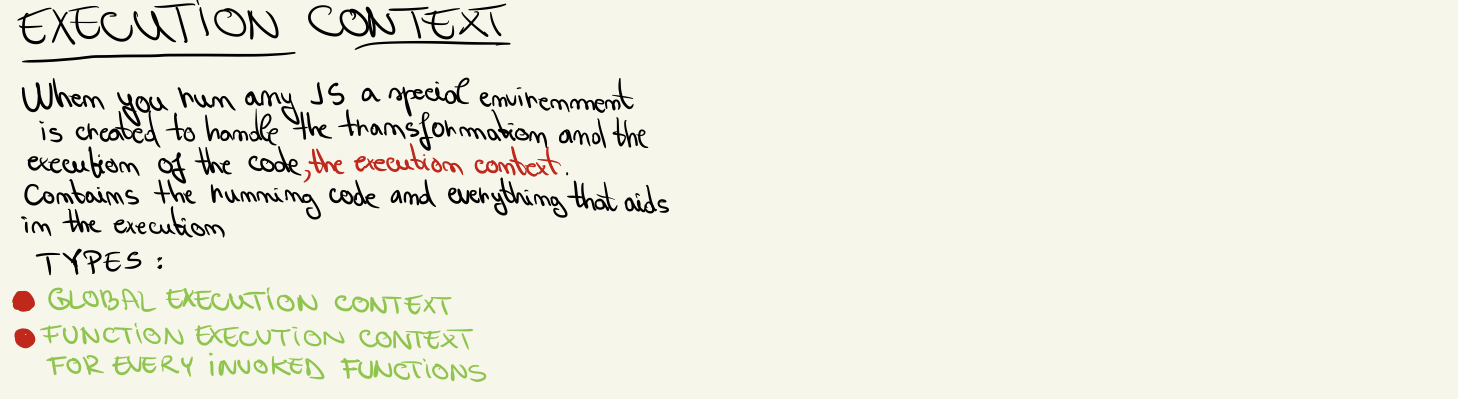 EXECUTION CONTEXT
When you run any JS a special environment
is created to handle the transformation and the
execution of the code, the execution context.
Contains the running code and everything that aids
in the execution
TYPES :
GLOBAL EXECUTION CONTEXT
FUNCTION EXECUTION CONTEXT
FOR EVERY INVOKED FUNCTIONS